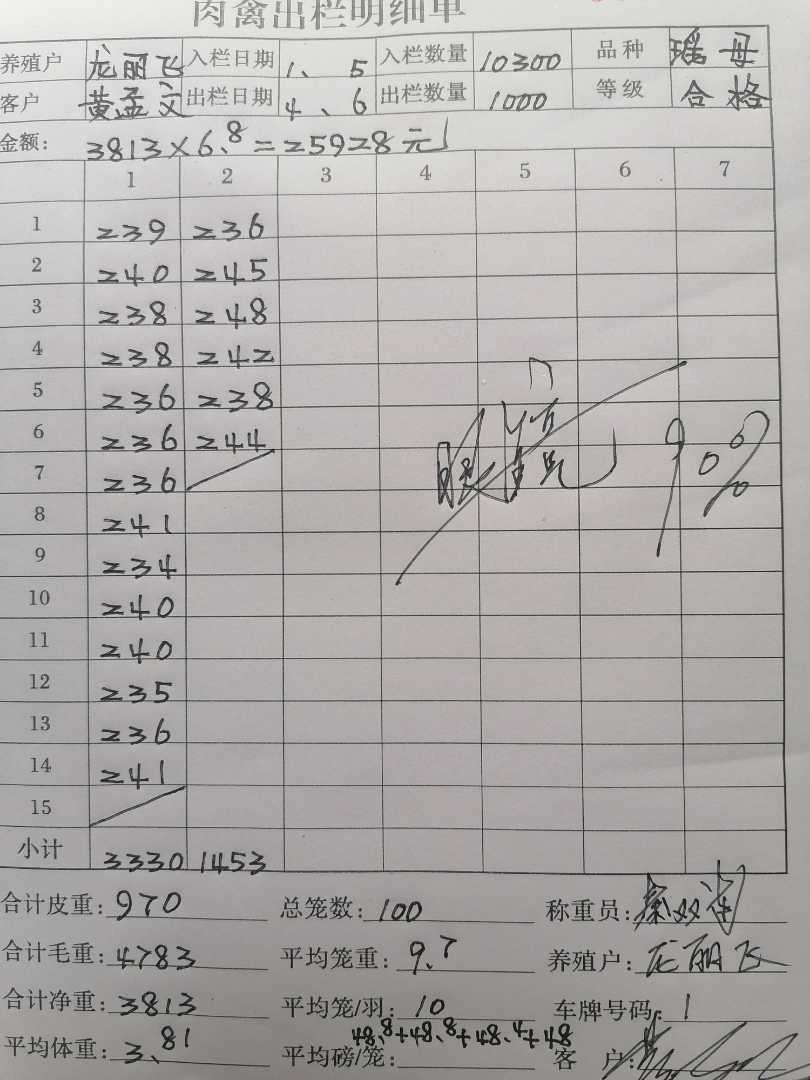 肉禽出栏明细单
养殖户 龙丽飞 入栏日期 1、5 入栏数量 10300 品种 瑶母
客户 黄孟文 出栏日期 4、6 出栏数量 1000 等级 合格
金额: 3813×6.8=25928元
1 2 3 4 5 6 7
1 239 236
2 240 245
3 238 248
4 238 242
5 236 238
6 236 244
7 236
8 241
9 234
10 240
11 240
12 235
13 236
14 241
15
90%
小计 3330 1453
合计皮重: 970 总笼数: 100 称重员:
合计毛重: 4783 平均笼重: 9.7 养殖户: 龙丽飞
合计净重: 3813 平均笼/羽: 10 车牌号码: 1
平均体重: 3.81 平均磅/笼: 48.8+48.8+48.4+48 客户: